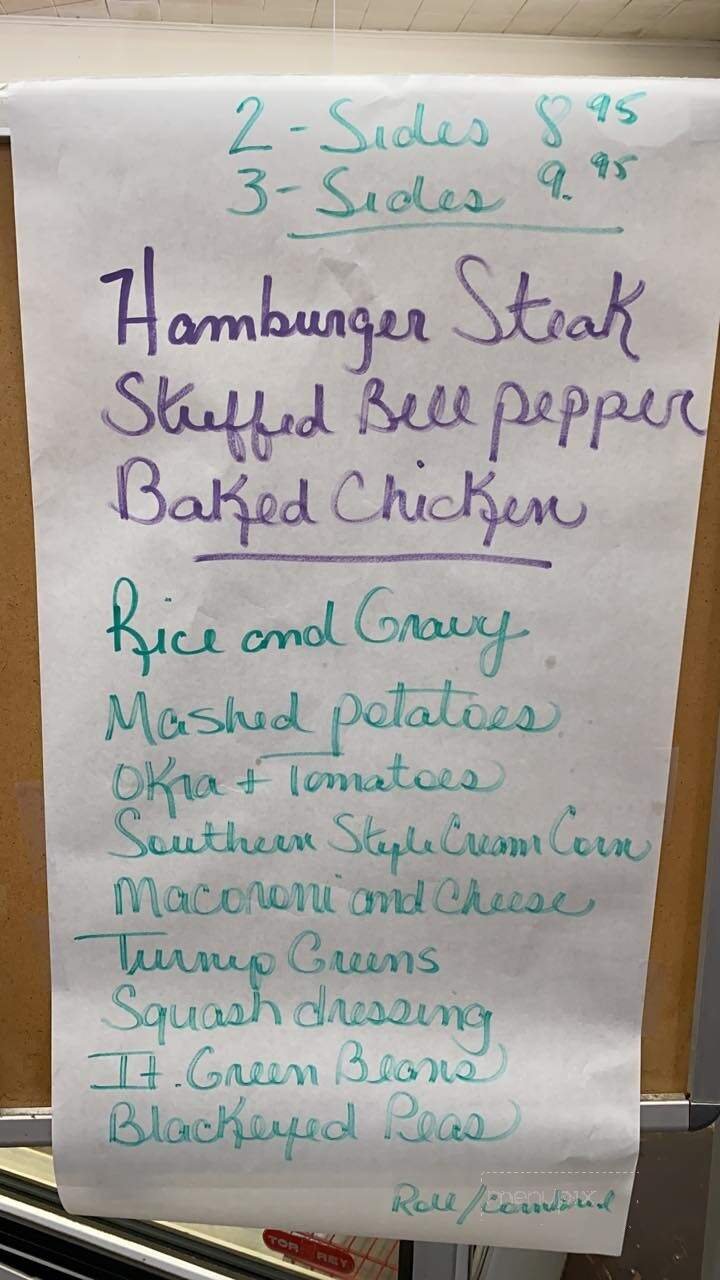 2 - Sides 8 95
3 - Sides 9. 95
Hamburger Steak
Stuffed Bell pepper
Baked Chicken
Rice and Gravy
Mashed potatoes
Okra + Tomatoes
Southern Style Cream Corn
Macoroni and Cheese
Turnip Greens
Squash dressing
It. Green Beans
Blackeyed Peas
Roll/Cornbread
menupix
TOR REY